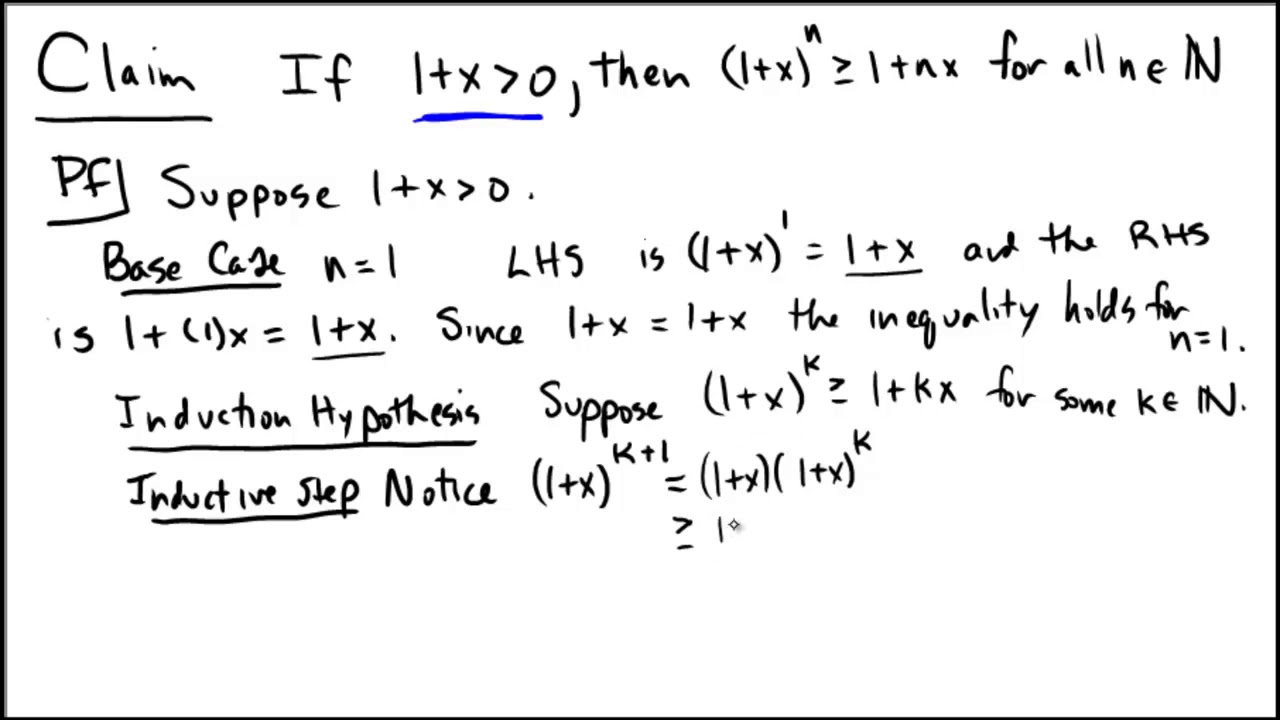 Claim If 1+x>0, then (1+x)^n ≥ 1+nx for all n ∈ ℕ
Pf] Suppose 1+x>0.
Base Case n=1 LHS is (1+x)^1 = 1+x and the RHS
is 1+(1)x = 1+x. Since 1+x = 1+x the inequality holds for n=1.
Induction Hypothesis Suppose (1+x)^k ≥ 1+kx for some k ∈ ℕ.
Inductive Step Notice (1+x)^{k+1} = (1+x)(1+x)^k
≥ 1